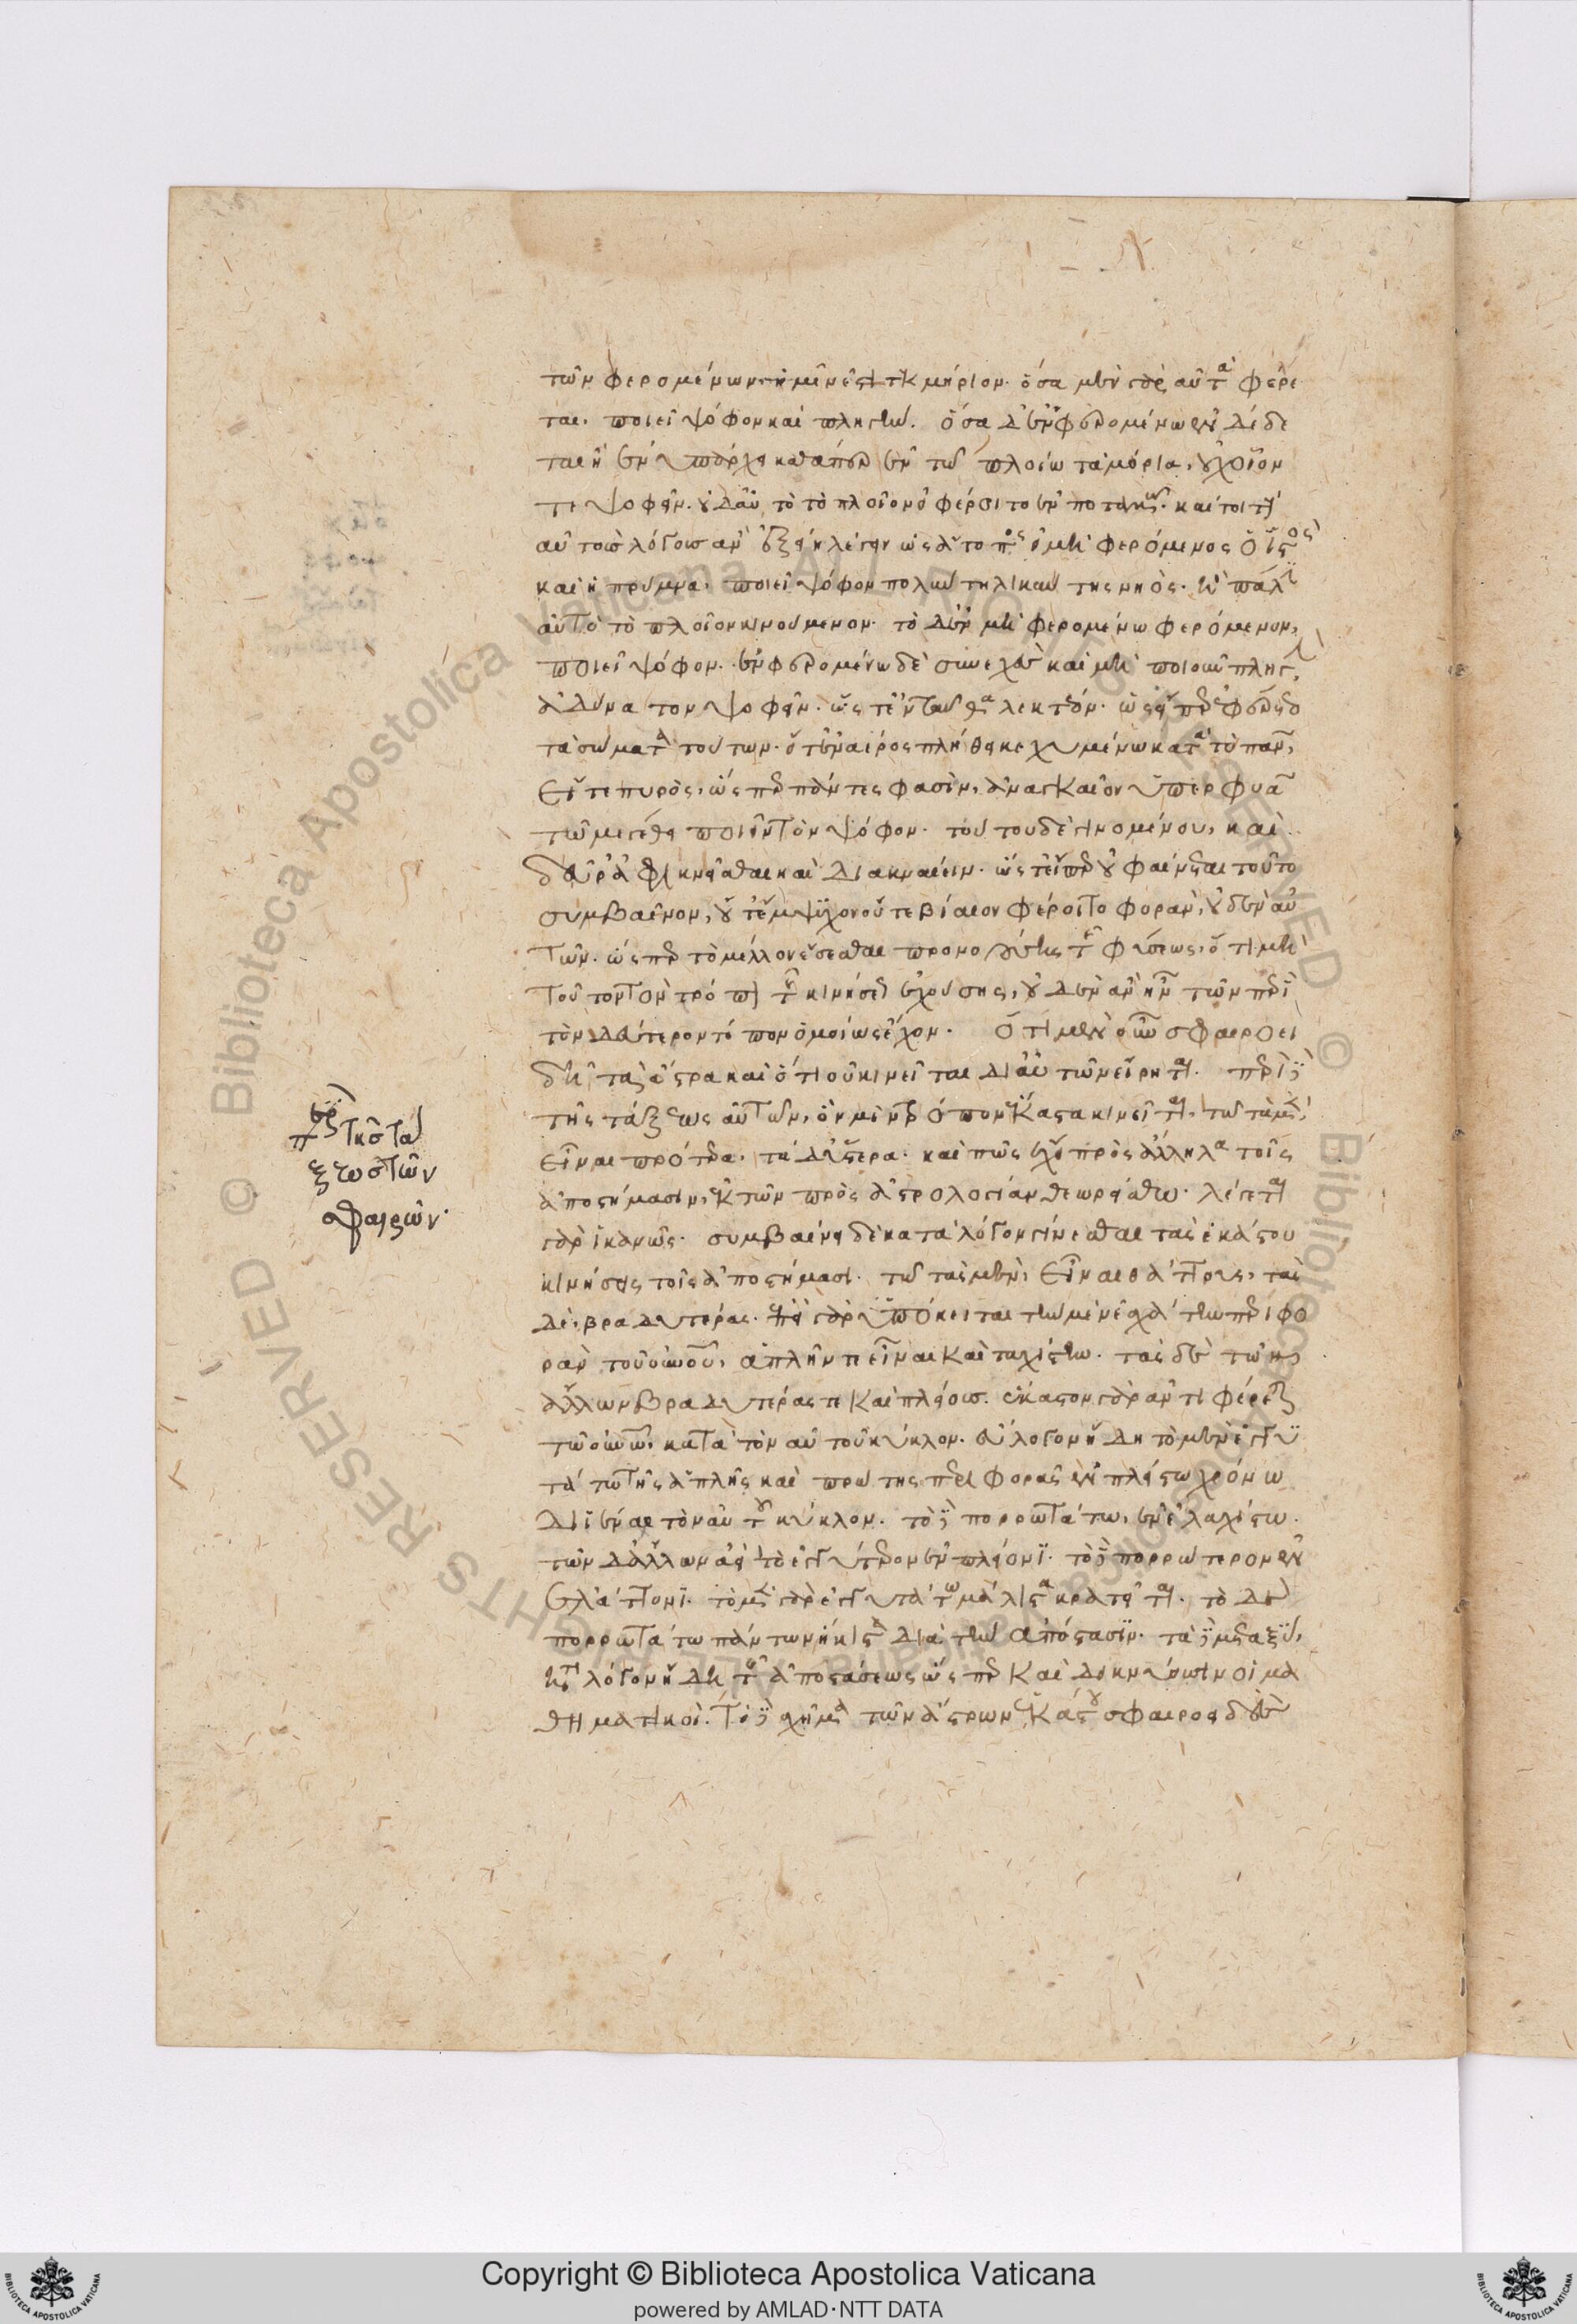 τῶν φερομένων ἡμῖν ἐστι τεκμήριον. ὅσα μὲν γὰρ αὐτὰ φέρε
ται, ποιεῖ ψόφον καὶ πληγήν. ὅσα δ' ἐν φερομένω ἐνδέδε
ται ἢ ἐνυπάρχει καθάπερ ἐν τῷ πλοίω τὰ μόρια, οὐχ οἷόν
τε ψοφεῖν. οὐδ' αὖ τὸ τὸ πλοῖον εἰ φέροιτο ἐν ποταμῶ. καί τοι τοὺς
αὐτοὺς λόγους ἂν ἐξείη λέγειν ὡς ἄτοπος εἰ μὴ φερόμενος ὁ ἱστὸς
καὶ ἡ πρύμνα, ποιεῖ ψόφον πολὺν τηλικαύτης νηός. ἢ πάλιν
αὐτὸ τὸ πλοῖον κινούμενον. τὸ δ' ἐν μὴ φερομένω φερόμενον,
ποιεῖ ψόφον. ἐν φερομένω δὲ συνεχὲς καὶ μὴ ποιοῦν πληγὴν,
ἀδύνατον ψοφεῖν. ὥς τ' ἐνταῦθα λεκτέον. ὡς εἴπερ ἐφέρετο
τὰ σώματα τούτων. εἴτ' ἐν ἀέρος πλήθει κεχυμένω κατὰ τὸ πᾶν,
εἴτε πυρὸς, ὥσπερ πάντες φασὶν, ἀναγκαῖον ὑπερφυᾶ
τῶ μεγέθει ποιεῖν τὸν ψόφον. τούτου δὲ γινομένου, καὶ
δεῦρ' ἀφικνεῖσθαι καὶ διακναίειν. ὥς τ' εἴπερ οὐ φαίνεται τοῦτο
συμβαῖνον, οὔτ' ἔμψυχον οὔτε βίαιον φέροιτο φορὰν, οὐδὲν αὐ
τῶν. ὥσπερ τὸ μέλλον ἔσεσθαι προνοούσης τῆς φύσεως, ὅτι μὴ
τοῦτον τὸν τρόπον τῆς κινήσεως ἐχούσης, οὐδὲν ἂν ἦν τῶν περὶ
τὸν δεύτερον τόπον ὁμοίως ἔχον. Ὅτι μὲν οὖν σφαιροει
δῆ τὰ ἄστρα καὶ ὅτι οὐ κινεῖται δι' αὑτῶν εἴρηται. περὶ δὲ
τῆς τάξεως αὐτῶν, ὃν μὲν τρόπον ἕκαστα κινεῖται, τῷ τὰ μὲν
εἶναι πρότερα, τὰ δ' ὕστερα. καὶ πῶς ἔχει πρὸς ἄλληλα τοῖς
ἀποστήμασιν, ἐκ τῶν πρὸς ἀστρολογίαν θεωρείσθω. λέγεται
γὰρ ἱκανῶς. συμβαίνει δὲ κατὰ λόγον γίνεσθαι τὰς ἑκάστου
κινήσεις τοῖς ἀποστήμασι. τῷ τὰς μὲν, εἶναι θάττους, τὰς
δὲ, βραδυτέρας. ἐπεὶ γὰρ ὑπόκειται τὴν μὲν ἐσχάτην περιφο
ρὰν τοῦ οὐρανοῦ, ἁπλῆν τ' εἶναι καὶ ταχίστην. τὰς δὲ τῶν
ἄλλων βραδυτέρας τε καὶ πλείους. ἕκαστον γὰρ ἀντιφέρεται
τῶ οὐρανῶ, κατὰ τὸν αὑτοῦ κύκλον. εὔλογον ἤδη τὸ μὲν ἐγγυ
τάτω τῆς ἁπλῆς καὶ πρώτης περιφορᾶς ἐν πλείστω χρόνω
διϊέναι τὸν αὑτοῦ κύκλον. τὸ δὲ πορρωτάτω, ἐν ἐλαχίστω.
τῶν δ' ἄλλων ἀεὶ τὸ ἐγγύτερον ἐν πλείονι. τὸ δὲ πορρώτερον ἐν
ἐλάττονι. τὸ μὲν γὰρ ἐγγυτάτω μάλιστα κρατεῖται. τὸ δὲ
πορρωτάτω πάντων ἥκιστα διὰ τὴν ἀπόστασιν. τὰ δὲ μεταξὺ,
κατὰ λόγον ἤδη τῆς ἀποστάσεως ὥσπερ καὶ δεικνύουσιν οἱ μα
θηματικοί. Τὸ δὲ σχῆμα τῶν ἄστρων ἑκάστου σφαιροειδὲς
σφαιρῶν·